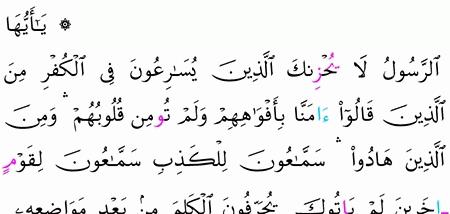 ۞ يَٰٓأَيُّهَا
اَ۬لرَّسُولُ لَا يُحْزِنكَ اَ۬لذِينَ يُسَٰرِعُونَ فِے اِ۬لْكُفْرِ مِنَ
اَ۬لذِينَ قَالُوٓاْ ءَامَنَّا بِأَفْوَٰهِهِمْ وَلَمْ تُومِن قُلُوبُهُمْۖ وَمِنَ
اَ۬لذِينَ هَادُواْۖ سَمَّٰعُونَ لِلْكَذِبِ سَمَّٰعُونَ لِقَوْمٍ
اٰخَرِينَ لَمْ يَاتُوكَۖ يُحَرِّفُونَ اَ۬لْكَلِمَ مِنۢ بَعْدِ مَوَاضِعِهِۦ